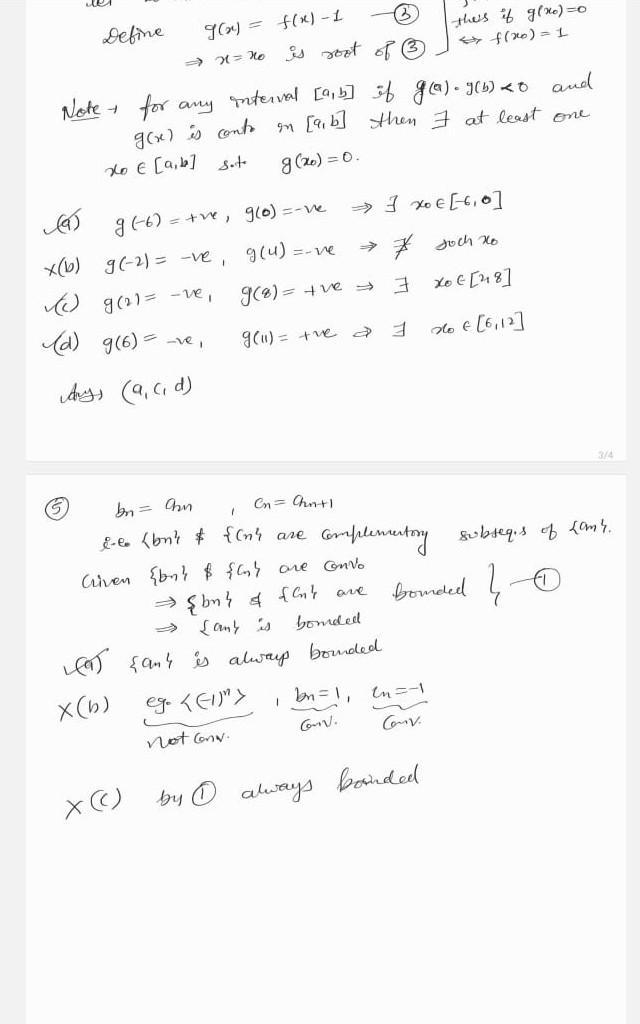 Define g(x) = f(x) - 1 — ③
thus if g(x₀)=0
⇒ x = x₀ is root of ③
⇔ f(x₀) = 1
Note → for any interval [a,b] if g(a)·g(b) < 0 and
g(x) is conts on [a,b] then ∃ at least one
x₀ ∈ [a,b] s.t. g(x₀) = 0.
✓(a) g(-6) = +ve, g(0) = -ve ⇒ ∃ x₀ ∈ [-6,0]
×(b) g(-2) = -ve, g(4) = -ve ⇒ ∄ such x₀
✓(c) g(2) = -ve, g(8) = +ve ⇒ ∃ x₀ ∈ [2,8]
✓(d) g(6) = -ve, g(11) = +ve ⇒ ∃ x₀ ∈ [6,12]
Ans (a, c, d)
3/4
⑤ bn = a2n, cn = a2n+1
i.e. {bn} & {cn} are complementary subseq.s of {an}.
Given {bn} & {cn} are conv.
⇒ {bn} & {cn} are bounded } — ①
⇒ {an} is bounded
✓(a) {an} is always bounded
×(b) eg. <(-1)ⁿ>, bn = 1, cn = -1
not conv. conv. conv.
×(c) by ① always bounded